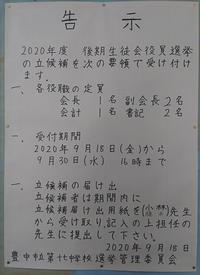 告示
2020年度 後期生徒会役員選挙
の立候補を次の要領で受け付け
ます。
一、各役職の定員
会長 1名 副会長 2名
会計 1名 書記 2名
一、受付期間
2020年9月18日(金)から
9月30日(水) 16時まで
一、立候補の届け出
立候補者は期間内に
立候補届け出用紙を(小林)先生
から受け取り、記入の上担任の
先生に提出して下さい。
2020年9月18日
豊中市立第十七中学校選挙管理委員会